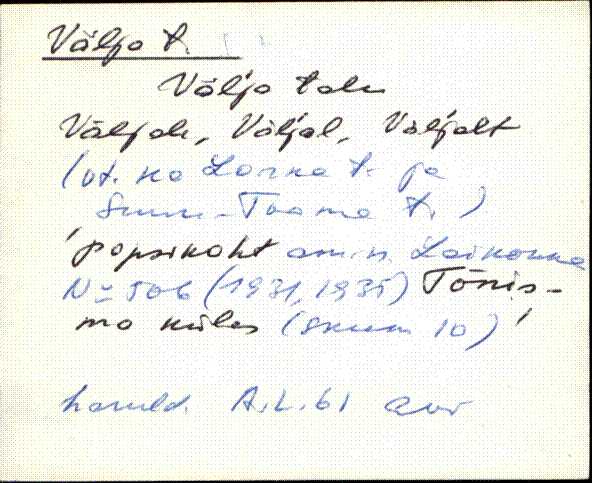 Välja t.
Välja talu
Väljale, Väljal, Väljalt
(vt. ka Lorna t. ja
Suur-Tooma t.)
'popsikoht am.n.
No 506 (1931, 1935) Tõnis-
ma külas (skeem 10)'
A.L. 61